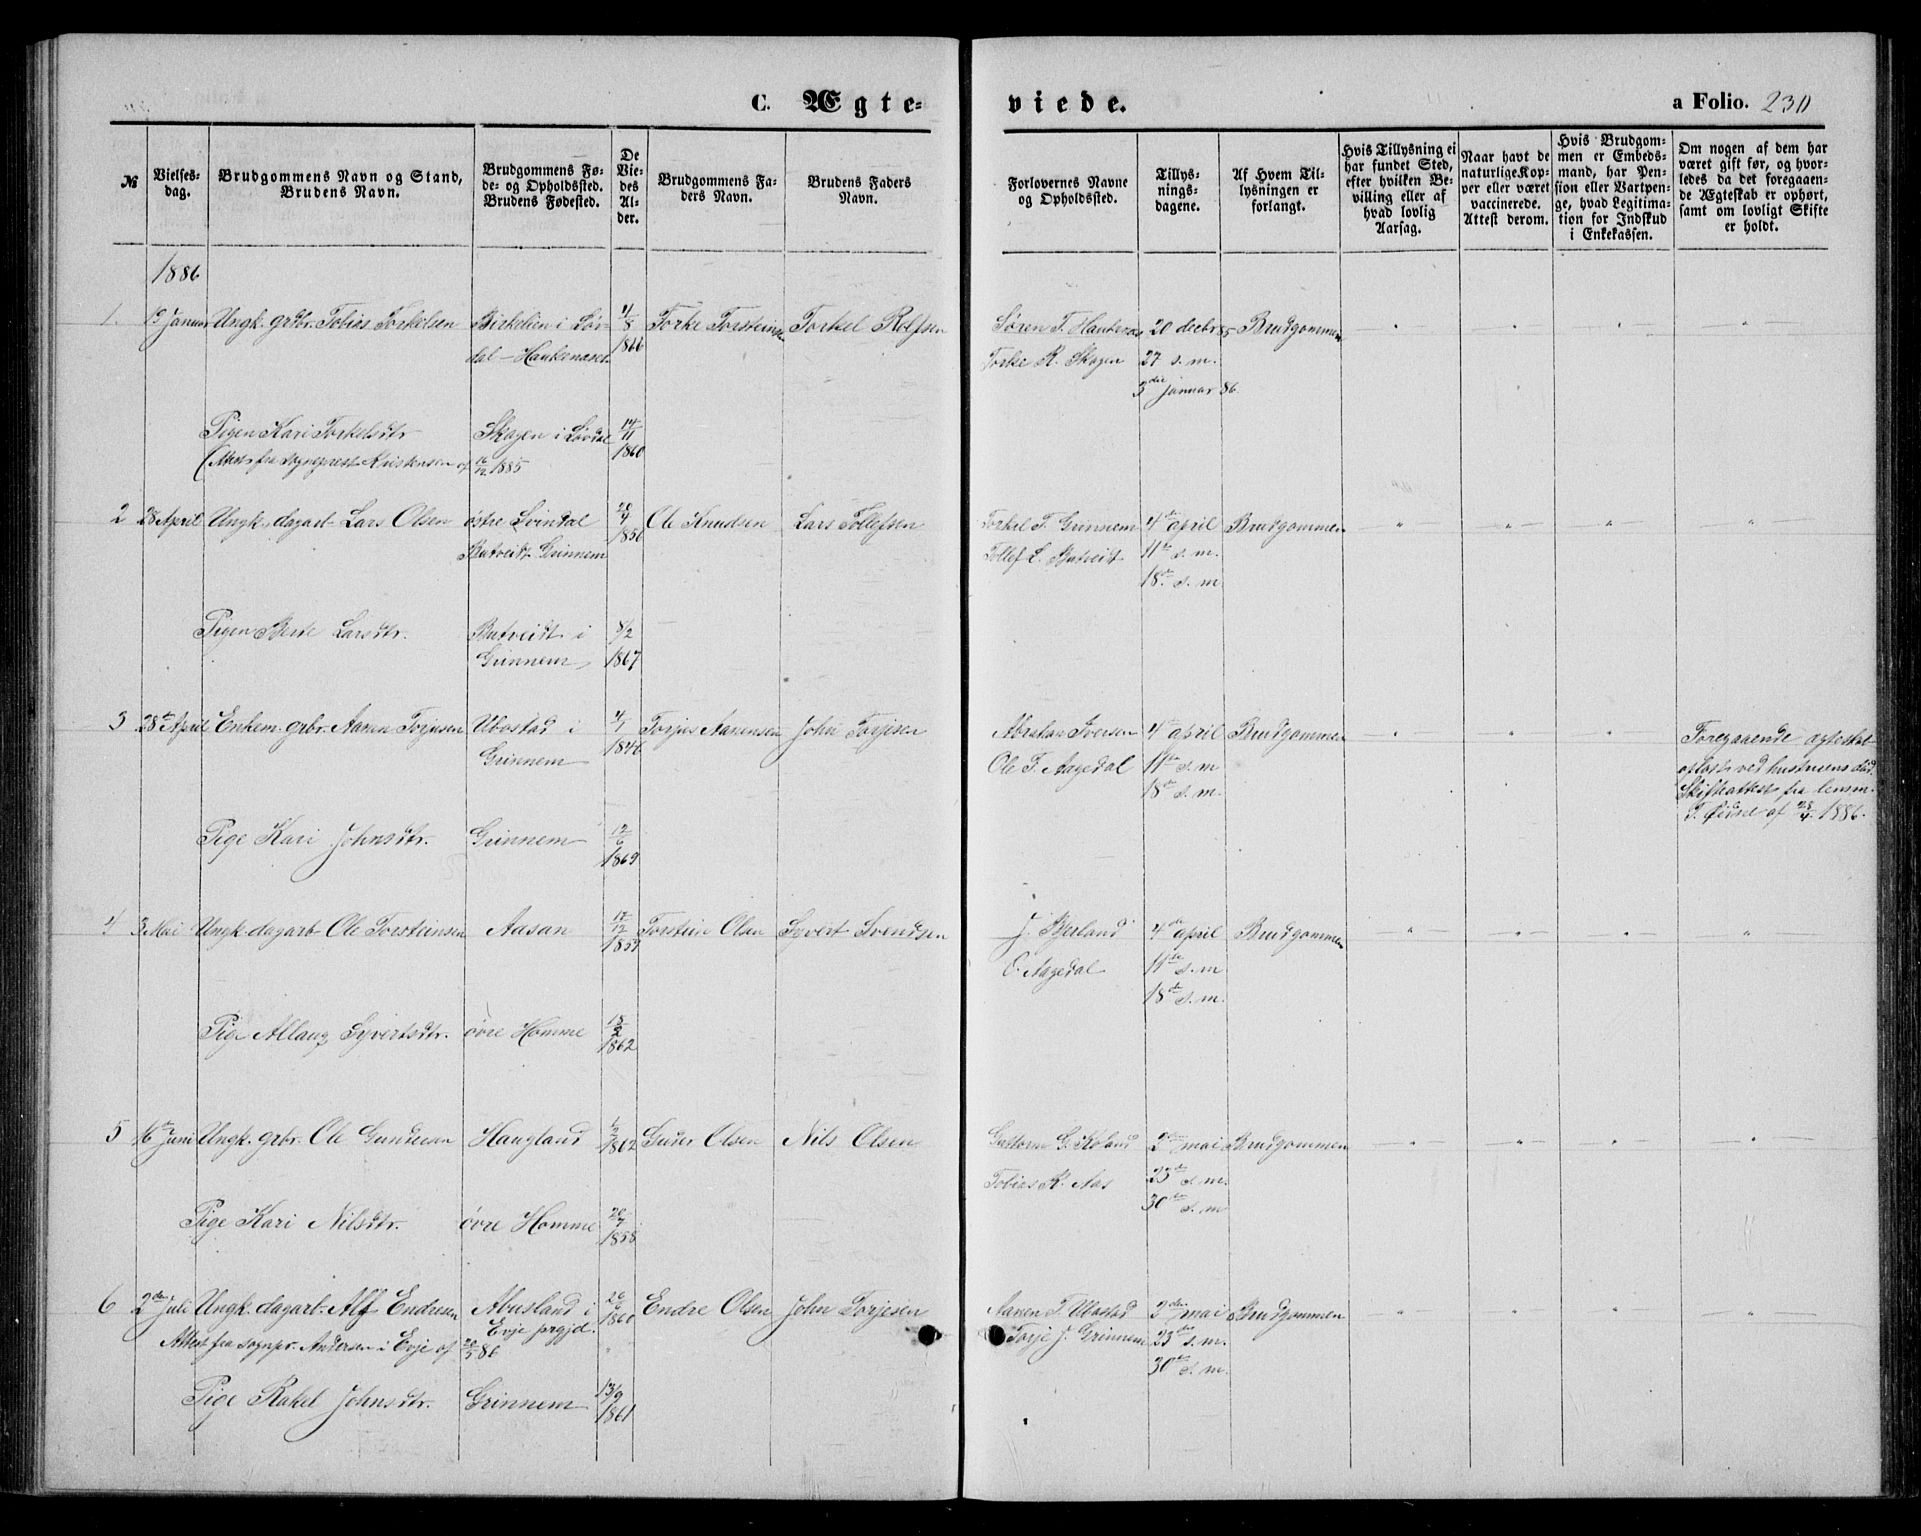 C. Ægte-
viede.
a Folio. 230
№
Vielses-
dag.
Brudgommens Navn og Stand,
Brudens Navn.
Brudgommens Fø-
de- og Opholdssted.
Brudens Fødested.
De
Vie-
des
Al-
der.
Brudgommens Fa-
ders Navn.
Brudens Faders
Navn.
Forlovernes Navne
og Opholdssted.
Tillys-
nings-
dagene.
Af Hvem Til-
lysningen er
forlangt.
Hvis Tillysning ei
har fundet Sted,
efter hvilken Be-
villing eller af
hvad lovlig
Aarsag.
Naar havt de
naturlige Kop-
per eller været
vaccinerede.
Attest derom.
Hvis Brudgom-
men er Embeds-
mand, har Pen-
sion eller Vartpen-
ge, hvad Legitima-
tion for Indskud
i Enkekassen.
Om nogen af dem har
været gift før, og hvor-
ledes da det foregaaen-
de Ægteskab er ophørt,
samt om lovligt Skifte
er holdt.
1886
1. Januar Ungk. grdbr. Tobias Torkelsen Birkelien i Løv- 4/8 Torke Torsteinsen Torkel Rolfsen Søren T. 20 decbr 85 Brudgommen
dal - 1866 Torke R. Skogen 27 s. m.
3die januar 86.
Pigen Kari Torkelsdtr Skogen i Løvdal 14/11
(Attest fra sogneprest Kristensen af 1885 1860
2 28 April Ungk. dagarb. Lars Olsen østre Svindal 20/4 Ole Knudsen Lars Tollefsen Torkel T. Grinnem 4de april Brudgommen
Butveit Grinnem 1856 Tollef L. Butveit 11te s. m.
18de s. m.
Pigen Berte Larsdtr. Butveidt i 8/2
Grinnem 1867
3 28de April Enkem. grbr. Aanen Torjusen Ubostad i 4/1 Torjus Aanensen John Torjesen Abraham Iversen 4de april Brudgommen Foregaaende ægteskab
Grinnem 1846 Ole T. Aagedal 11te s. m opløst ved hustruens død
18de s. m. Skifteattest fra lensm.
af 23/4 1886.
Pige Kari Johnsdtr. Grinnem 12/6
1869
4 3 Mai Ungk dagarb Ole Torsteinsen Aasan 17/12 Torstein Olsen Syvert Svendsen J. Bjelland 4de april Brudgommen
1859 O. Aagedal 11te s. m
18de s. m.
Pige Allaug Syvertsdtr. øvre Homme 18/2
1862
5 16de Juni Ungk. grbr. Ole Gundersen Haugland 1862 Guder Olsen Nils Olsen Guttorm G. 2den mai Brudgommen
Tobias R. Aas 23de s. m.
30te s. m
Pige Kari Nilsdtr. øvre Homme 20/7
1858
6 2den Juli Ungk. dagarb. Alf Endresen Abusland i 26/9 Endre Olsen John Torjesen Aanen T. Ubostad 2den mai Brudgommen
Evje prgjd. 1860 Torje J. Grinnem 23de s. m.
Attest fra sognpr. Andersen i Evje af 20/5 86 30te s. m.
Pige Rakel Johnsdtr. Grinnem 13/9
1861